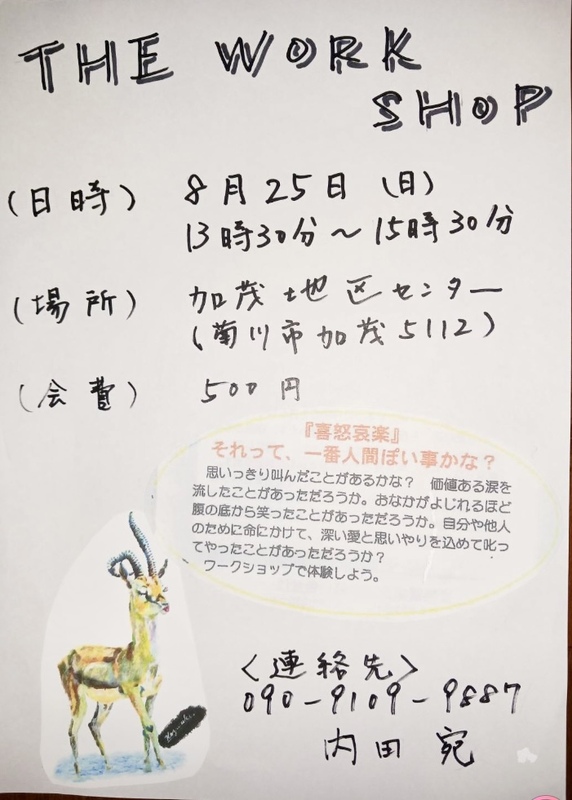 THE WORK
SHOP
(日時) 8月25日(日)
13時30分~15時30分
(場所) 加茂地区センター
(菊川市加茂5112)
(会費) 500円
『喜怒哀楽』
それって、一番人間ぽい事かな?
思いっきり叫んだことがあるかな? 価値ある涙を
流したことがあっただろうか。おなかがよじれるほど
腹の底から笑ったことがあっただろうか。自分や他人
のために命にかけて、深い愛と思いやりを込めて叱っ
てやったことがあっただろうか?
ワークショップで体験しよう。
<連絡先>
090-9109-9887
内田 宛